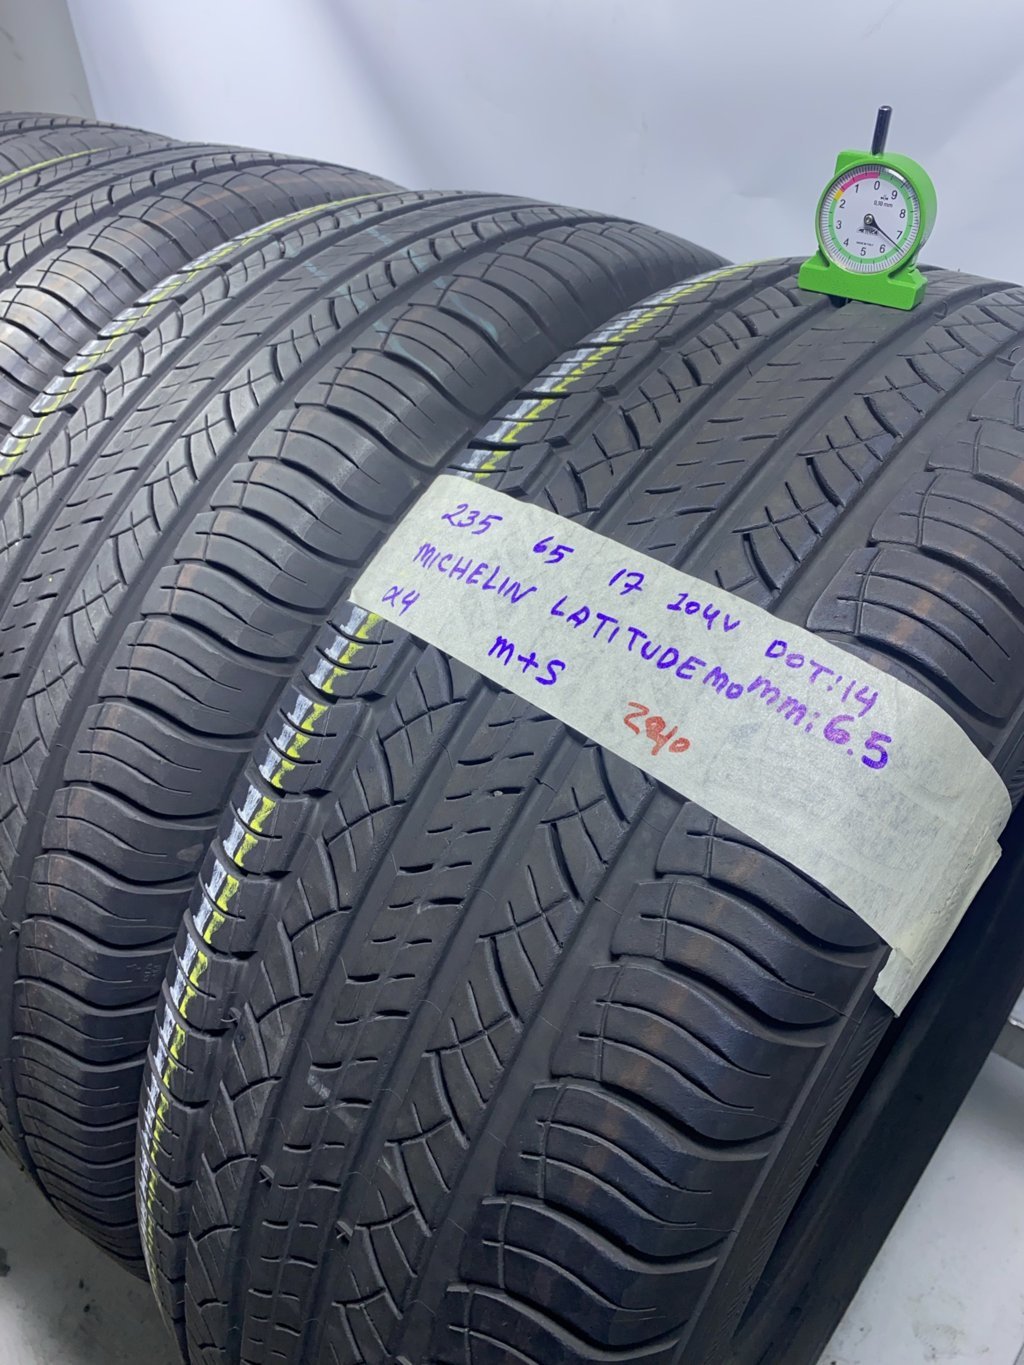 235 65 17 104V DOT:14
MICHELIN LATITUDE MO mm:6.5
α4
M+S
0 9 8 7 6 5 4 3 2 1
0,10 mm